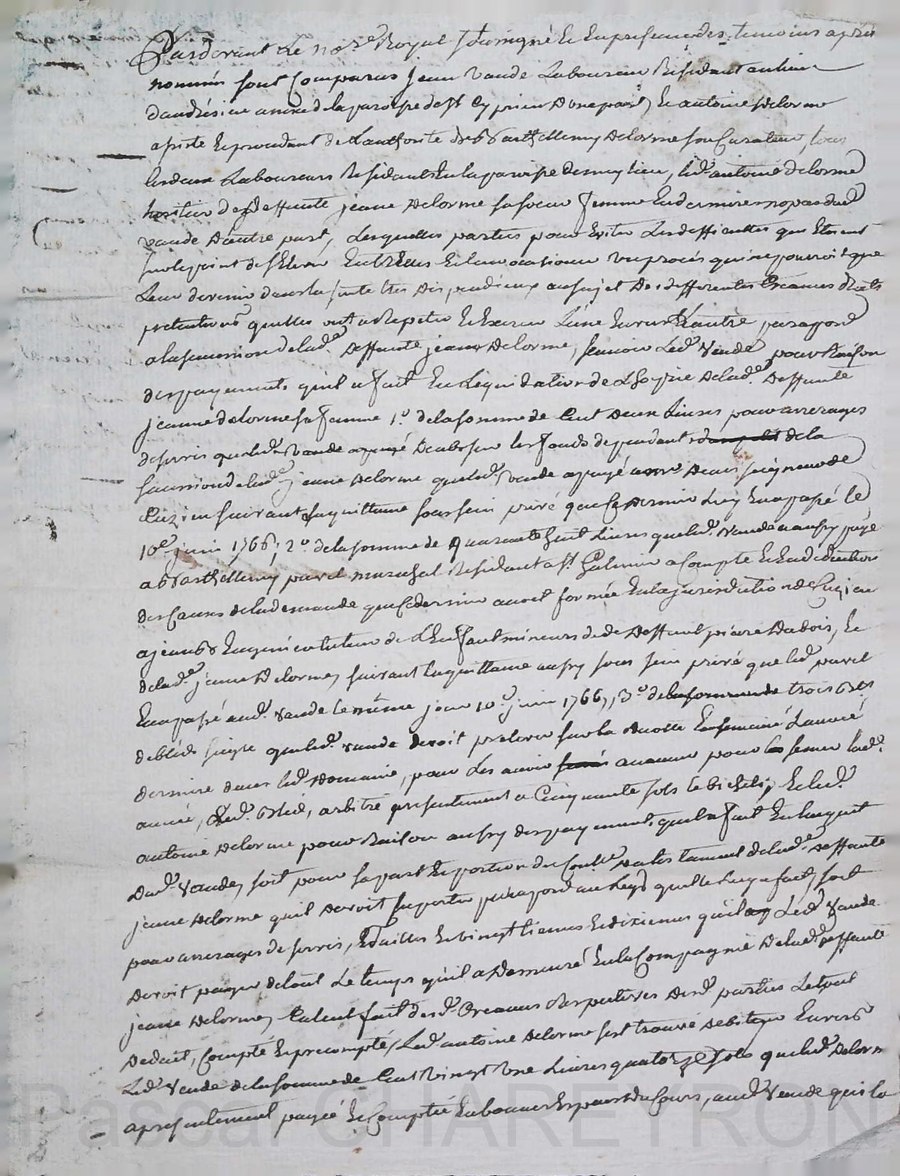 Pardevant Le no.re Royal Soussigné Et En presence des temoins apres
nommés sont Comparus jean vande Laboureur Residant au lieu
d'andresieu annexe de la paroisse de st Cyprien d'une part, Et antoine Delorme
assisté Et procedant de L'authorité de Barthellemy Delorme son Curateur, tous
Les deux Laboureurs Residants En la paroisse de , led. antoine delorme
heritier de deffunte jeanne Delorme sa soeur femme En dernieres nopces dud.
vande D'autre part, Lesquelles parties pour Eviter Les difficultés qui Etoient
sur le point de s'Elever Entr'Elles Et leur occasioner un procés qui ne pouvoit que
Leur devenir dans la suite tres dispendieux au sujet des differentes Creances droits
pretentions quelles ont a Repeter Et Exercer L'une Envers L'autre, par raport
a la succession de lad.e Deffunte jeanne Delorme, scavoir Led. Vande pour Raison
des payements qu'il a fait En Lequidation de L'hoyrie de lad.e Deffunte
jeanne delorme sa femme 1.o de la somme de Cent deux Livres pour arrerages
de servis que led. vande a payé sur les fonds dependants de la
succession de lad.e jeanne Delorme que led. vande a payé seigneur de
Cuzieu suivant la quittance sous sein privé que Ce dernier Luy En a passé le
10.e juin 1766, 2.o de la somme de Quarante huit Livres que led. Vande a aussy payé
a Barthellemy pavet marechal Residant a st. Galmier a Compte Et En deduction
des Causes de la demande que Ce dernier avoit formée En la jurisdiction de Cuzieu
a jean tuteur de L'Enfant mineur de deffunt pierre Dubois, Et
de lad.e jeanne Delorme, suivant la quittance aussy sous sein privé que led. pavet
En a passé aud. vande le même jour 10.e juin 1766, 3.o de trois
de bled seigle que led. vande devoit prelever sur la Recolte Ensemencé L'année
derniere dans led. Domaine, pour Les avoir avancer pour semer lad.
année, Led. bled, arbitré presentement a Cinquante sols le bichet, Et led.
antoine Delorme pour Raison aussy des payements quil a fait En L'acquit
Dud. Vande, soit pour sa part Et portion du Contr.e Du testament de lad.e Deffunte
jeanne Delorme qu'il devoit suporter par raport au Legs quelle Luy a fait, soit
pour arrerages de servis, Et tailles Et vingtiemes Et dixiemes que Led. Vande
devoit payer de tout Le temps qu'il a Demeuré En la Compagnie de lad.e deffunte
jeanne Delorme, Calcul fait desd. Creances Respectives desd. parties Le tout
Deduit, Compté Et precompté, Led. antoine Delorme s'est trouvé debiteur Envers
Led. Vande de la somme de Cent Vingt une Livres quatorze sols que led. Delorme
a presentement payée Et Comptée En bonnes Especes du Cours, aud. Vande qui la
Pascal CHAREYRON